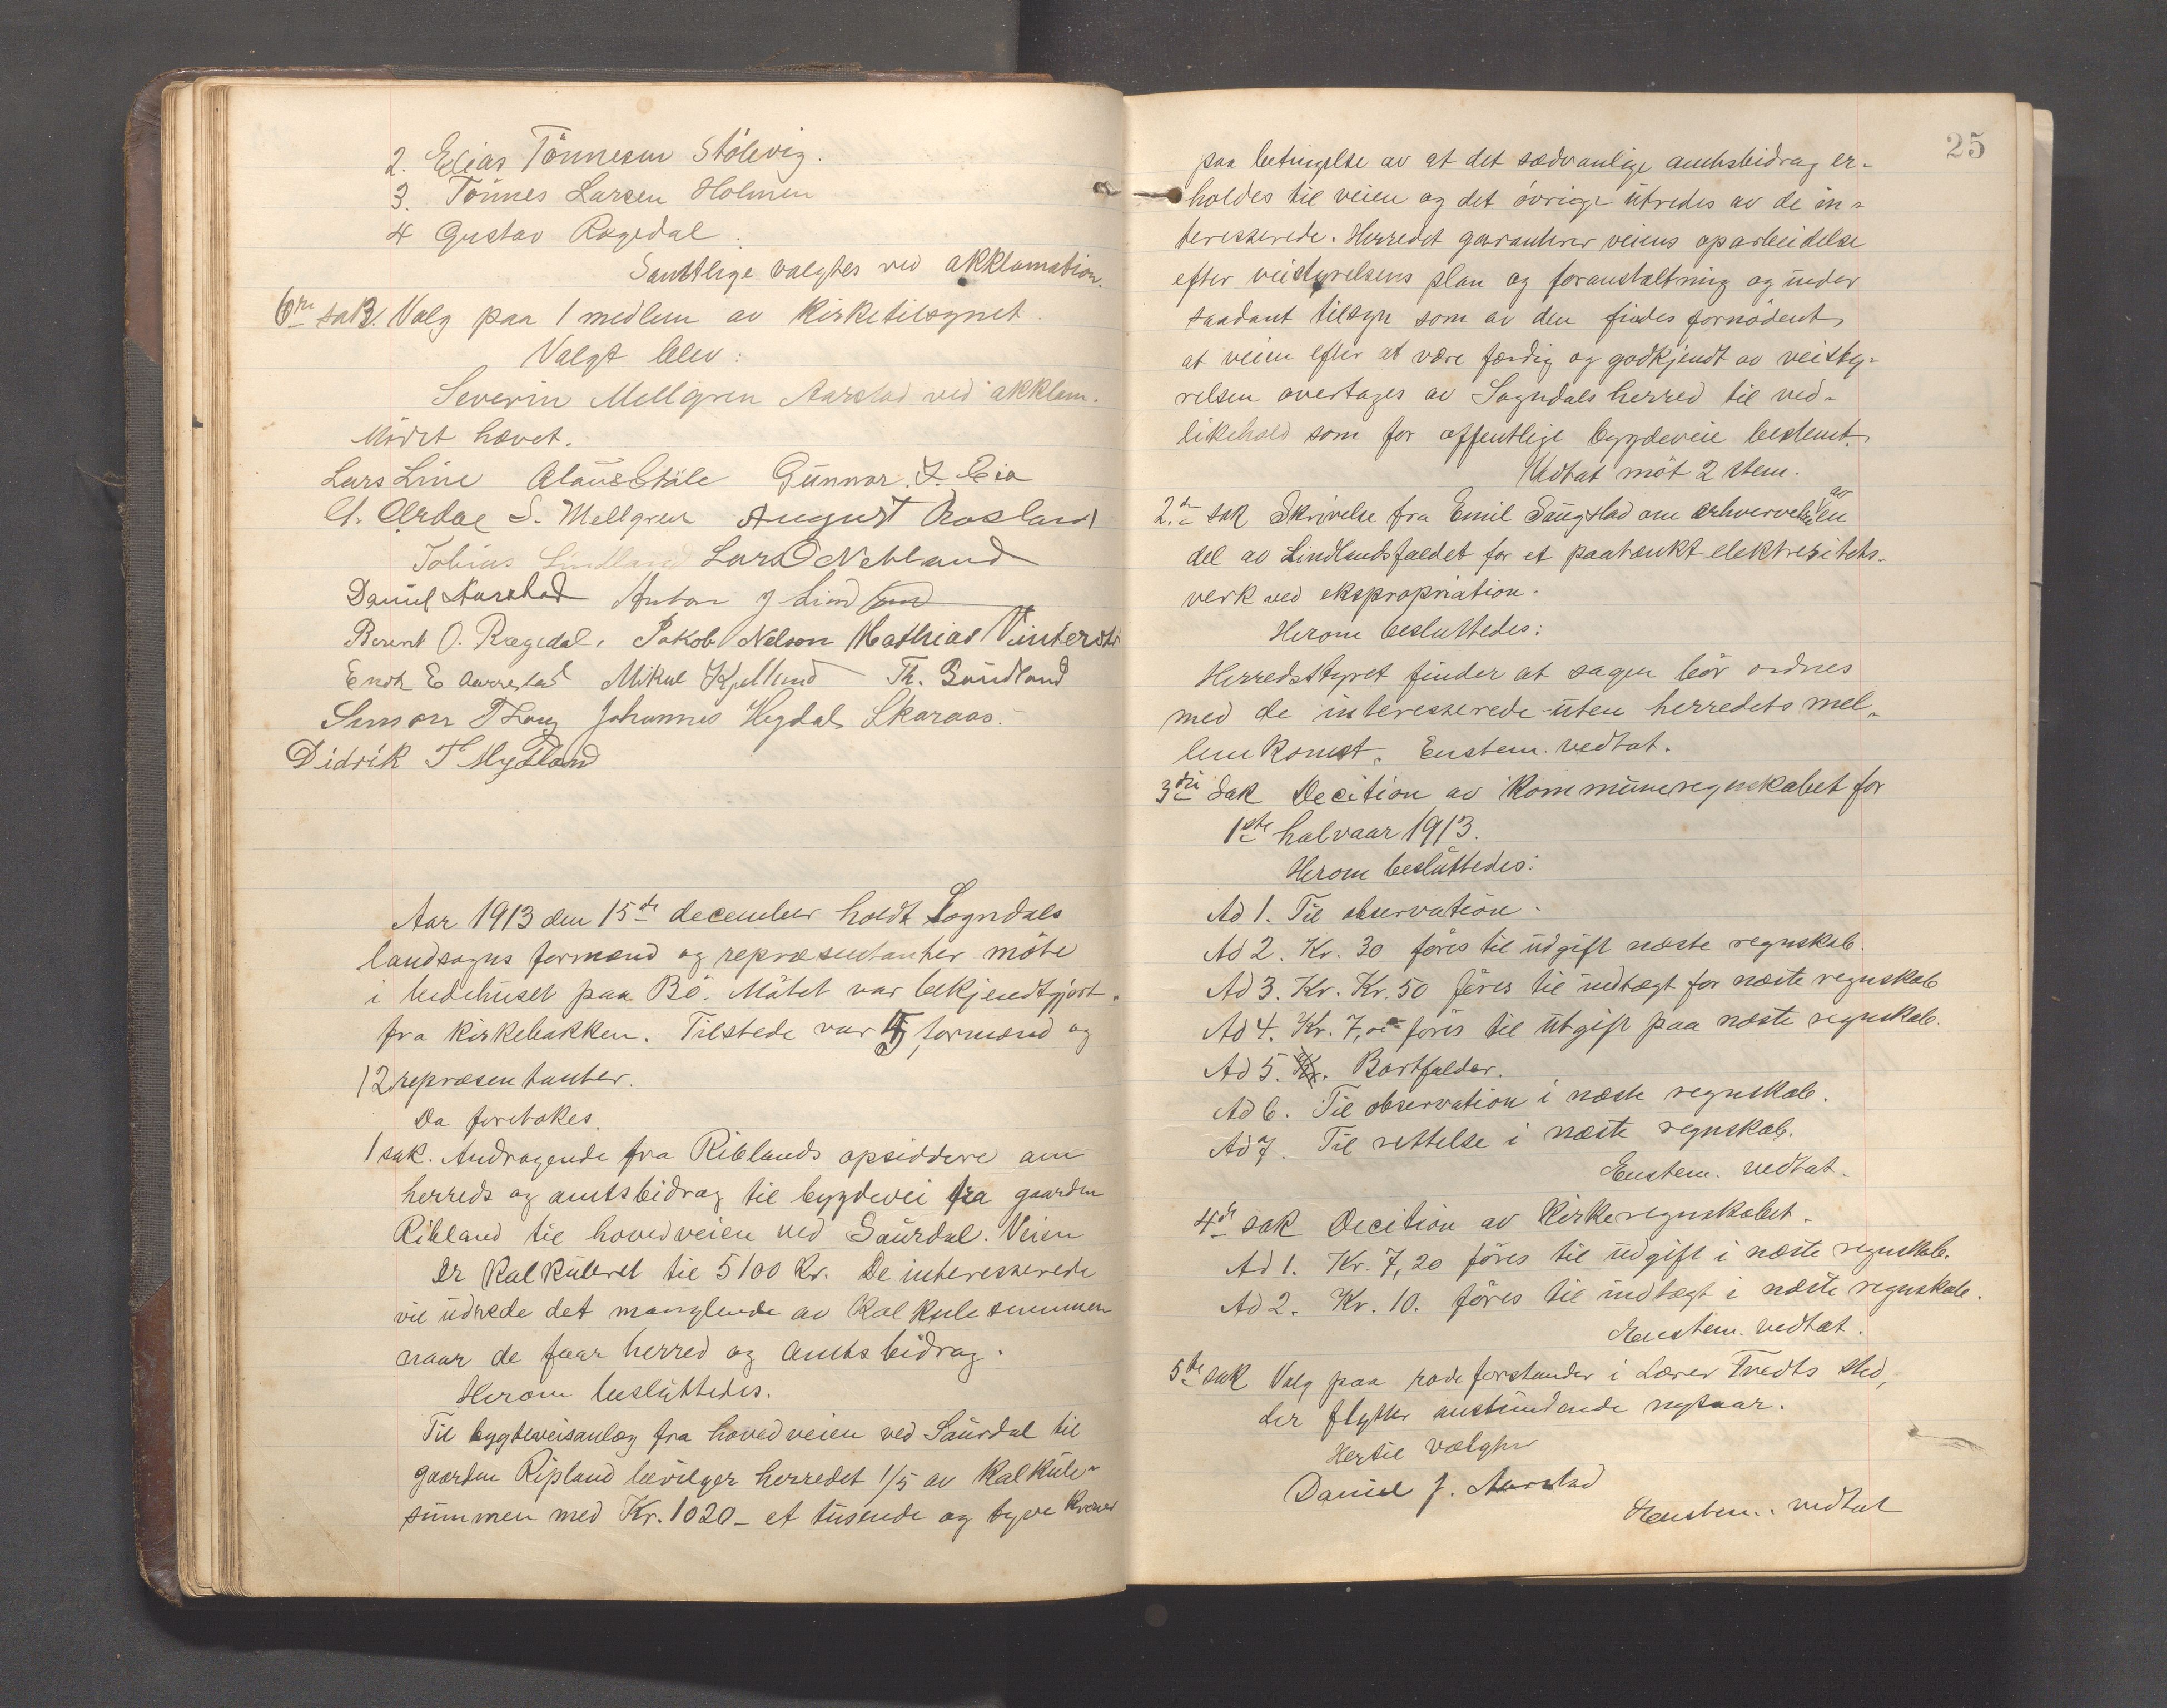 2. Elias Tönnesen Stölevig.
3. Tönnes Larsen Holmen
4 Gustav Rægedal.
Samtlige valgtes ved akklamation.
6te sak. Valg paa 1 medlem av kirketilsynet.
Valgt blev:
Severin Mellgren Aarstad ved akklam.
Mödet hævet.
Lars Line Olaus Ståle Gunnar J. Eia
S. Mellgren August Rosland
Tobias Lindland Lars O Nebland
Daniel Aarstad Anton J Lindland
Berent O. Rægedal, Jakob Nelson Mathias Vinterstö
Endre E Aarrestad Mikal Kjelland Th. Sundland
Simon Johannes Hegdal, Skaraas.
Didrik T Mydland
Aar 1913 den 15de december holdt Sogndals
landsogns formænd og repræsentanter möte
i bedehuset paa Bö. Mötet var bekjendtgjort
fra kirkebakken. Tilstede var 5 formænd og
12 repræsentanter.
Da foretokes.
1 sak. Andragende fra Riblands opsiddere om
herreds og amtsbidrag til bygdevei fra gaarden
Ribland til hovedveien ved Saurdal. Veien
er kalkuleret til 5100 Kr. De interesserede
vil udrede det manglende av kalkulesummen
naar de faar herred og amtsbidrag.
Herom besluttedes.
Til bygdeveisanlæg fra hovedveien ved Saurdal til
gaarden Ripland bevilger herredet 1/5 av kalkule-
summen med Kr. 1020 - et tusende og tyve kroner
25
paa betingelse av at det sædvanlige amtsbidrag er-
holdes til veien og det övrige utredes av de in-
teresserede. Herredet garanterer veiens oparbeidelse
efter veistyrelsens plan og foranstaltning og under
saadant tilsyn som av den findes fornödent,
at veien efter at være færdig og godkjendt av veisty-
relsen overtages av Sogndals herred til ved-
likehold som for offentlige bygdeveie bestemt.
Vedtat möt 2 stem.
2.den sak Skrivelse fra Emil Saugstad om erhvervelse av en
del av Lindlandsfaldet for et paatænkt elektresitets-
verk ved ekspropriation.
Herom besluttedes:
Herredsstyret finder at sagen bör ordnes
med de interesserede uten herredets mel-
lemkomst. Enstem. vedtat.
3die Sak Decition av kommuneregnskabet for
1ste halvaar 1913.
Herom besluttedes:
Ad 1. Til observation.
Ad 2. Kr. 30 föres til udgift næste regnskab.
Ad 3. Kr. Kr. 50 föres til indtægt for næste regnskab
Ad 4. Kr. 7,00 föres til utgift paa næste regnskab.
Ad 5. Kr. Bortfalder.
Ad 6. Til observation i næste regnskab.
Ad 7. Til rettelse i næste regnskab.
Enstem. vedtat.
4de sak Decition av kirkeregnskabet.
Ad 1. Kr. 7,20 föres til udgift i næste regnskab.
Ad 2. Kr. 10. föres til indtægt i næste regnskab.
Enstem. vedtat.
5te sak Valg paa rodeforstander i Lærer Tvedts sted,
der flytter anstundende nytaar.
Hertil valgtes
Daniel J. Aarstad
Enstem. vedtat